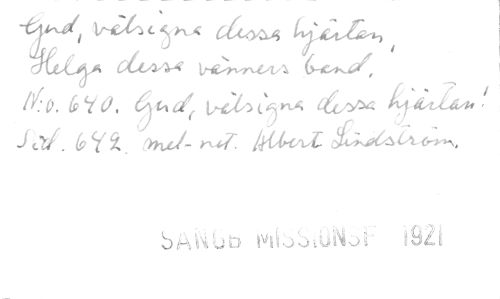 Gud, välsigna dessa hjärtan,
Helga dessa vänners band.
N:o. 640. Gud, välsigna dessa hjärtan!
Sid. 642. mel-not. Albert Lindström.
SÅNGB MISSIONSF 1921